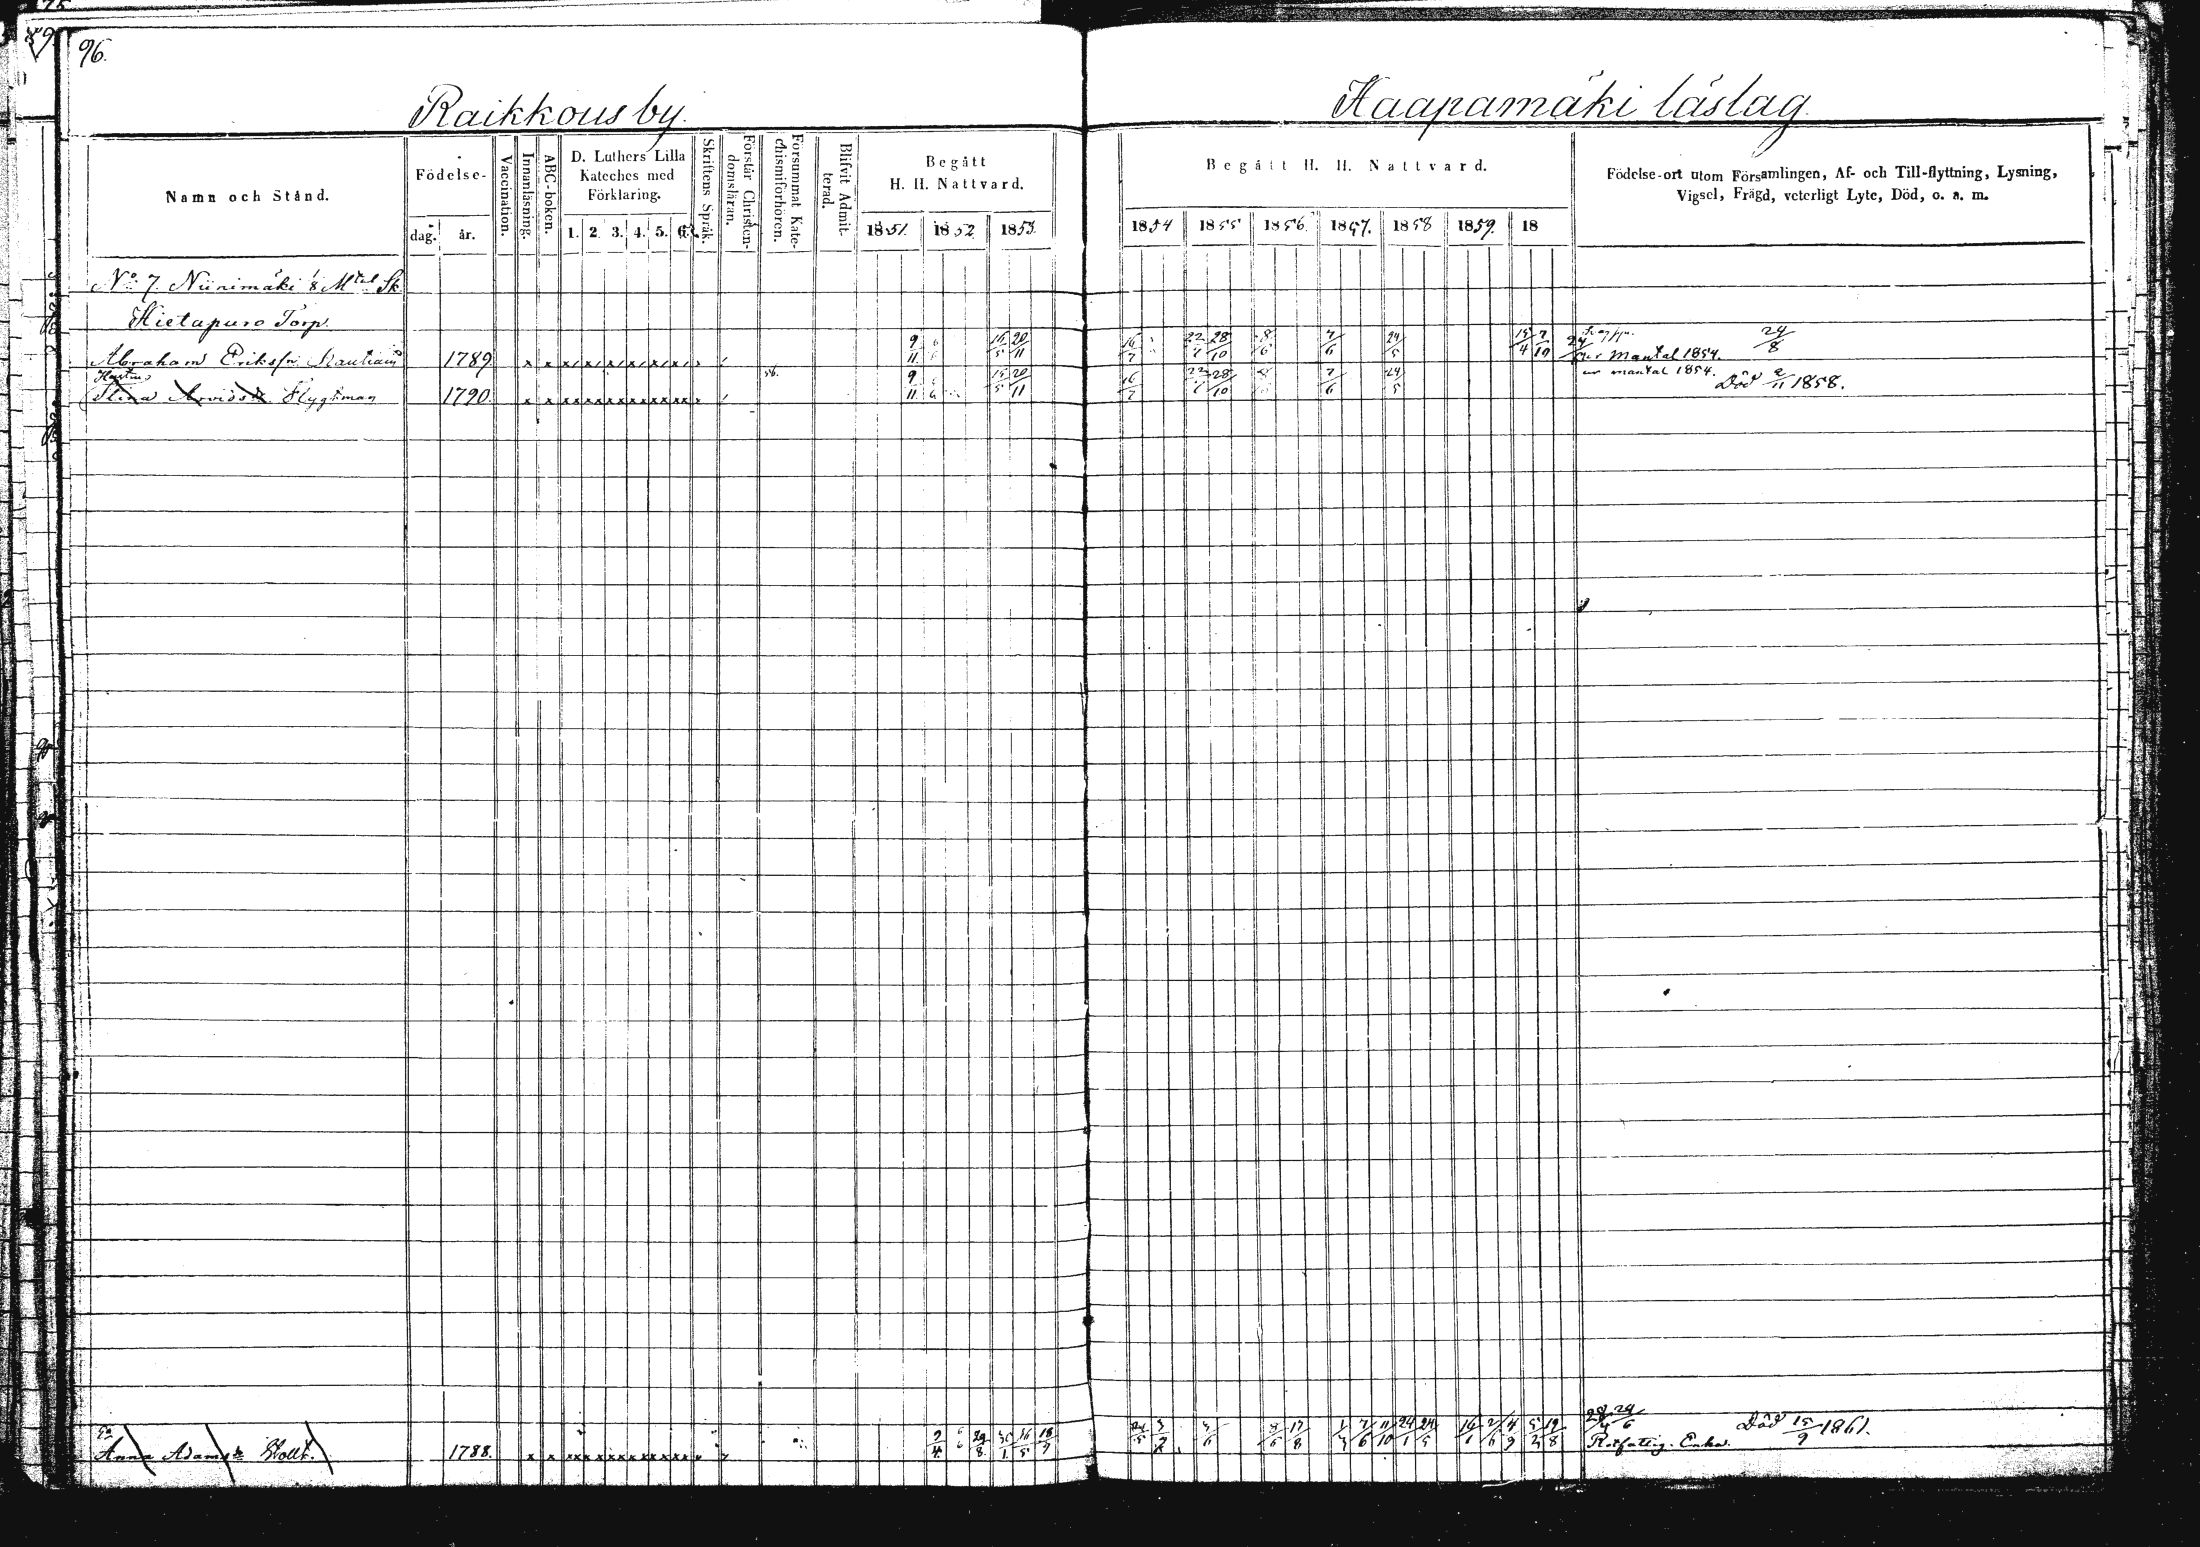 96.
Raikkous by.
Haapamäki läslag
Namn och Stånd.
Födelse-
dag. år.
Vaccination.
Innanläsning.
ABC-boken.
D. Luthers Lilla
Kateches med
Förklaring.
1. 2. 3. 4. 5. 6.
Skriftens Språk.
Förstår Christen-
domsläran.
Försummat Kate-
chismiförhören.
Blifvit Admit-
terad.
Begått
H. H. Nattvard.
1851. 1852. 1853.
Begått H. H. Nattvard.
1854 1855 1856. 1857. 1858 1859. 18
Födelse-ort utom Församlingen, Af- och Till-flyttning, Lysning,
Vigsel, Frägd, veterligt Lyte, Död, o. a. m.
No 7. Niinimäki 1/8 Mtal Sk
Hietapuro Torp.
Abraham Eriksn 1789. 9/11 15/5 20/11 16/7 22/7 28/10 8/6 7/6 24/5 15/4 7/10 24/8
ur Mantal 1854.
Hustru
Stina Arvidsdr Flygtman 1790. 56. 9/11 15/5 20/11 16/7 22/7 28/10 7/6 24/5
ur mantal 1854. Död 2/11 1858.
Anna Adamsdr 1788. 2/4 29/8 16/5 18/9 7/6 11/10 24/1 24/5 16/1 2/6 4/9 5/2 19/8 24/6
Rotfattig. Enka. Död 15/9 1861.